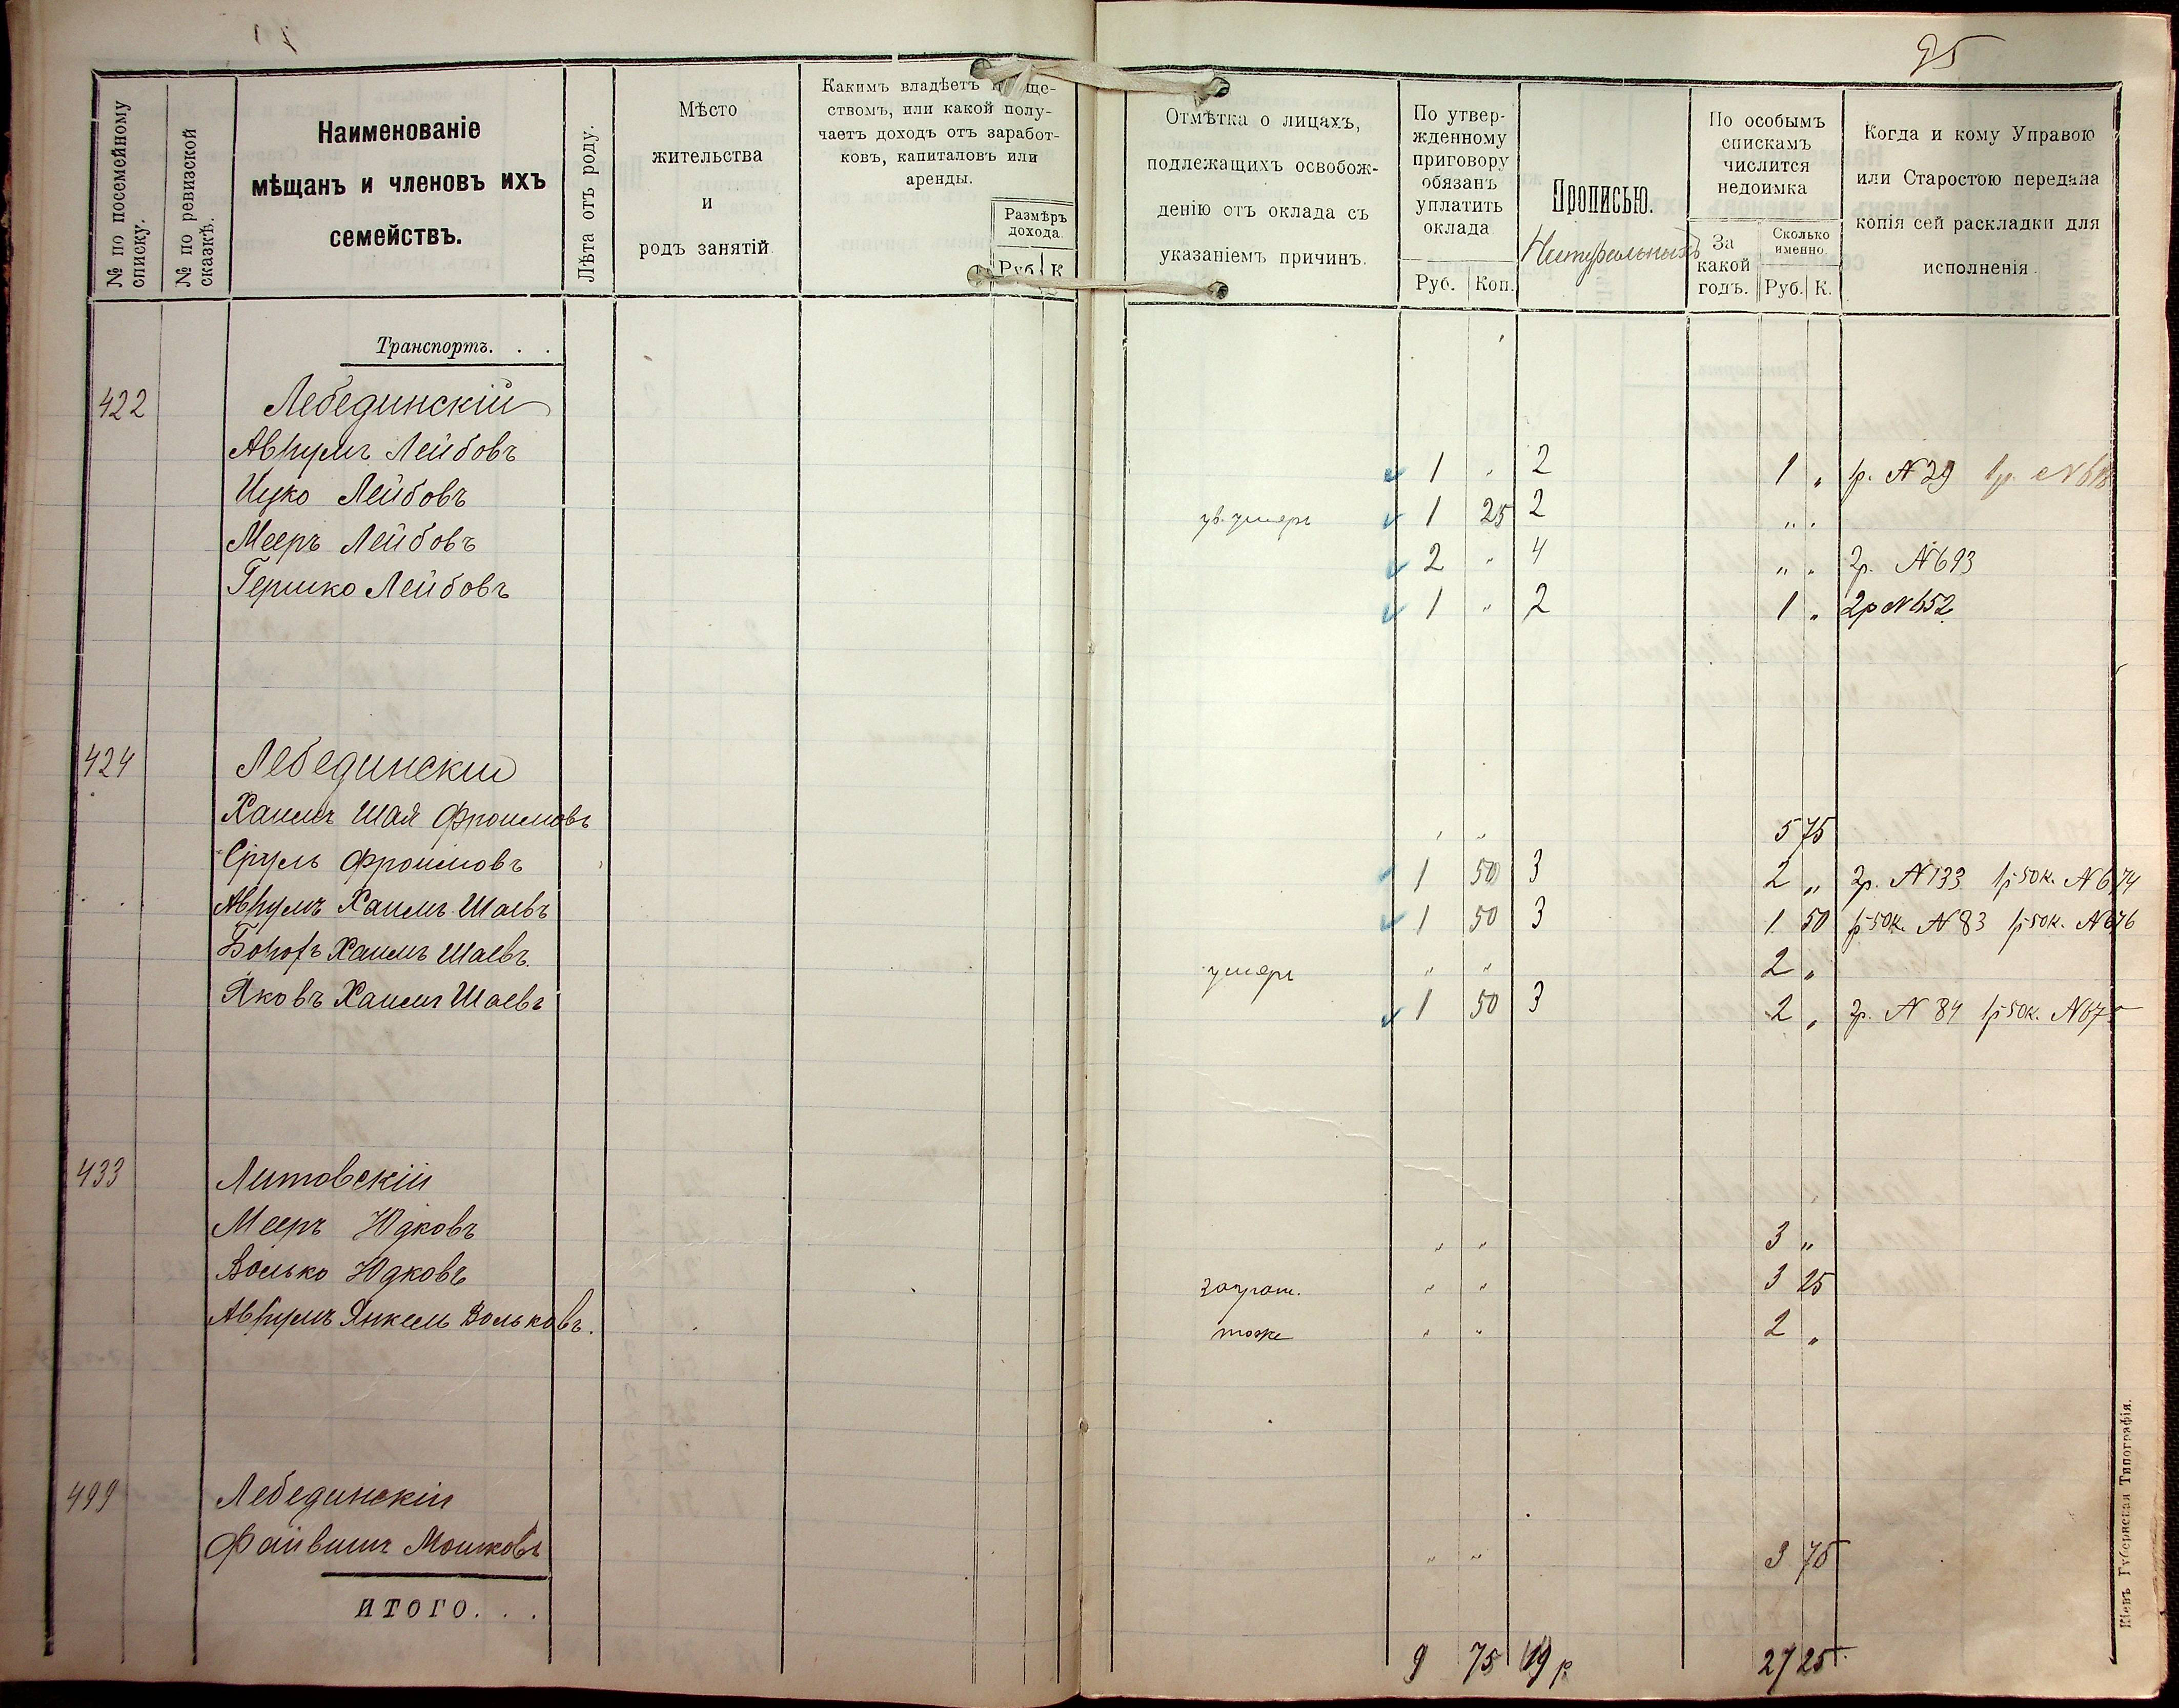 95
№ по посемейному списку.
№ по ревизской сказкѣ.
Наименованіе
мѣщанъ и членовъ ихъ
семействъ.
Лѣта отъ роду.
Мѣсто
жительства
и
родъ занятій.
Какимъ владѣетъ ще-
ствомъ, или какой полу-
чаетъ доходъ отъ заработ-
ковъ, капиталовъ или
аренды.
Размѣръ
дохода.
Руб. К.
Отмѣтка о лицахъ,
подлежащихъ освобож-
денію отъ оклада съ
указаніемъ причинъ.
По утвер-
жденному
приговору
обязанъ
уплатить
оклада
Руб. Коп.
Прописью.
Натуральныхъ
По особымъ
спискамъ
числится
недоимка
За
какой
годъ.
Сколько
именно.
Руб. К.
Когда и кому Управою
или Старостою передана
копія сей раскладки для
исполненія.
Транспортъ. . .
422 Лебединскій
Аврумъ Лейбовъ 1 „ 2 1 „ 1р. № 29
Ицко Лейбовъ умеръ 1 25 2 „ „
Мееръ Лейбовъ 2 „ 4 „ „ 2р. № 693
Гершко Лейбовъ 1 „ 2 1 „ 2р № 652
424 Лебединскій
Хаимъ Шая Фроимовъ „ „ 5 75
Сруль Фроимовъ 1 50 3 2 „ 2р. № 133 1р 50к. № 674
Аврумъ Хаимъ Шаевъ 1 50 3 1 50 1р 50к. № 83 1р 50к. № 676
Борохъ Хаимъ Шаевъ. умеръ „ „ 2 „
Яковъ Хаимъ Шаевъ 1 50 3 2 „ 2р. № 84 1р 50к. № 675
433 Литовскій
Мееръ Юдковъ „ „ 3 „
Волько Юдковъ заграт. „ „ 3 25
Аврумъ Янкель Вольковъ. тоже „ „ 2 „
499 Лебединскій
Файвишъ Мошковъ „ „ 3 75
ИТОГО. . .
9 75 19 р 27 25
Кіевъ Губернская Типографія.